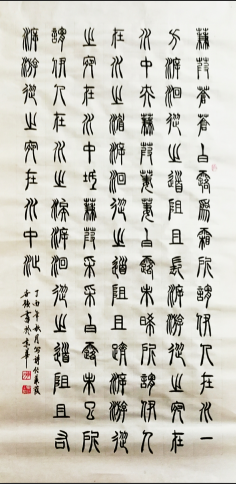 蒹葭蒼蒼白露爲霜所謂伊人在水一
方溯洄從之道阻且長溯游從之宛在
水中央蒹葭萋萋白露未晞所謂伊人
在水之湄溯洄從之道阻且躋溯游從
之宛在水中坻蒹葭采采白露未已所
謂伊人在水之涘溯洄從之道阻且右
溯游從之宛在水中沚
年秋月詩經蒹葭
書於京華